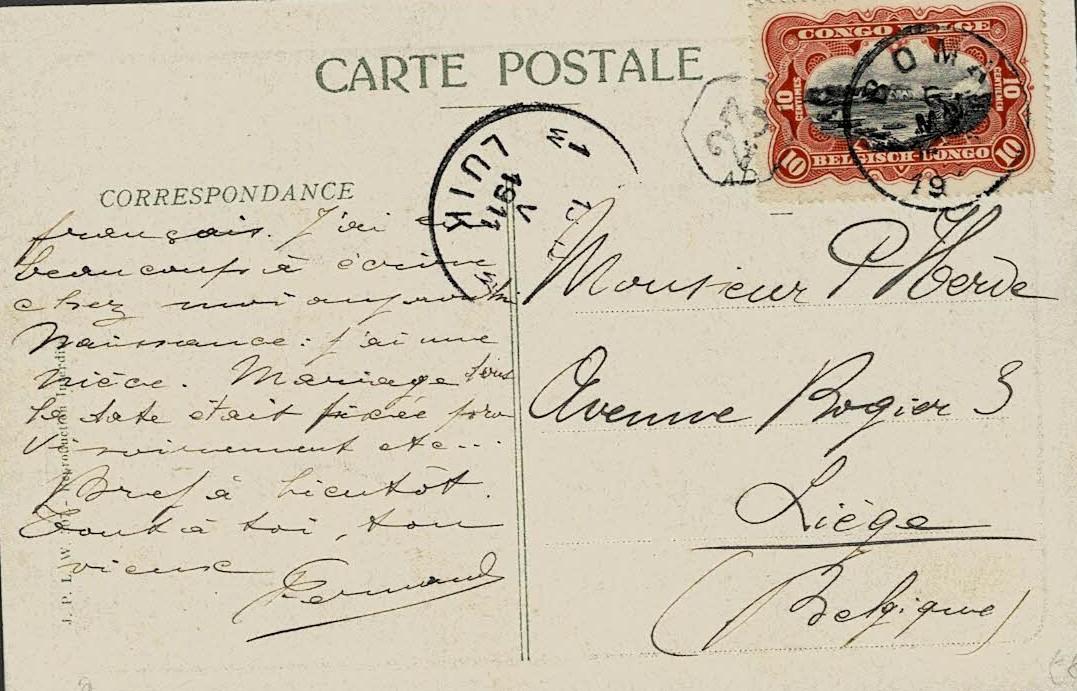 CARTE POSTALE
CONGO BELGE
10 CENTIMES
10 CENTIEMEN
10 BELGISCH-CONGO 10
BOMA
19
LUIK
1 V
1911
CORRESPONDANCE
français. J'ai
beaucoup à écrire
chez moi aujourd'hui
Naissance: j'ai une
nièce. Mariage
la date était fixée pro
visoirement etc...
Bref à bientôt.
Tout à toi, ton
vieux Fernand
Monsieur P Herde
Avenue Rogier 3
Liège
(Belgique)
J. P. L. W. Reproduction Interdite